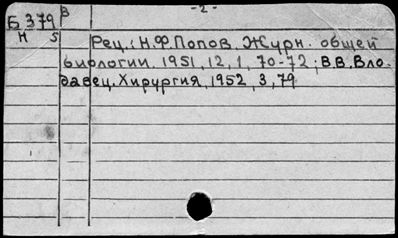 -2-
Б 379 В
Н 5
Рец.: Н.Ф.Попов. Журн. общей
биологии. 1951, 12, 1, 70-72; В.В.Вло-
давец. Хирургия, 1952, 3, 79